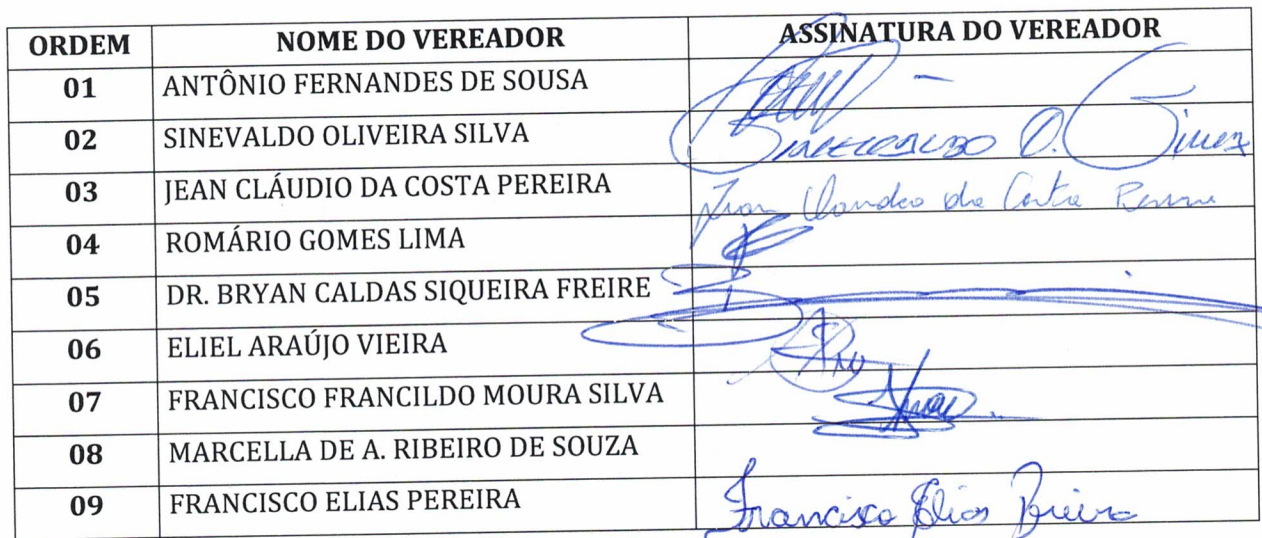 ORDEM NOME DO VEREADOR ASSINATURA DO VEREADOR
01 ANTÔNIO FERNANDES DE SOUSA
02 SINEVALDO OLIVEIRA SILVA O.
03 JEAN CLÁUDIO DA COSTA PEREIRA da Costa
04 ROMÁRIO GOMES LIMA
05 DR. BRYAN CALDAS SIQUEIRA FREIRE
06 ELIEL ARAÚJO VIEIRA
07 FRANCISCO FRANCILDO MOURA SILVA
08 MARCELLA DE A. RIBEIRO DE SOUZA
09 FRANCISCO ELIAS PEREIRA Francisco Elias Pereira